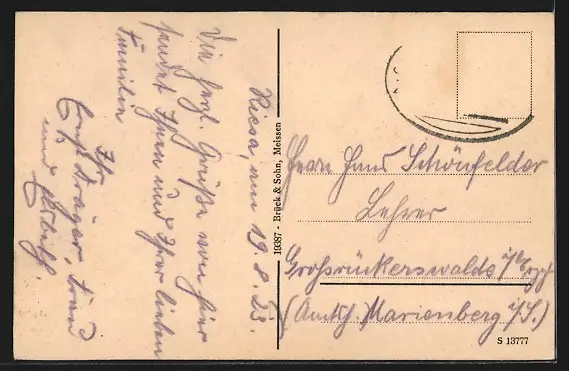 Riesa, am 19.8.23.
Die herzl. Grüße von hier
sendet Ihnen und Ihrer lieben
Familie
Ihr
Träger, Frau
und
19387 - Brück & Sohn, Meissen
Herrn Hans Schönfelder
Lehrer
Großrückerswalde i/Erzg.
(Amtsh. Marienberg i/S.)
S 13777